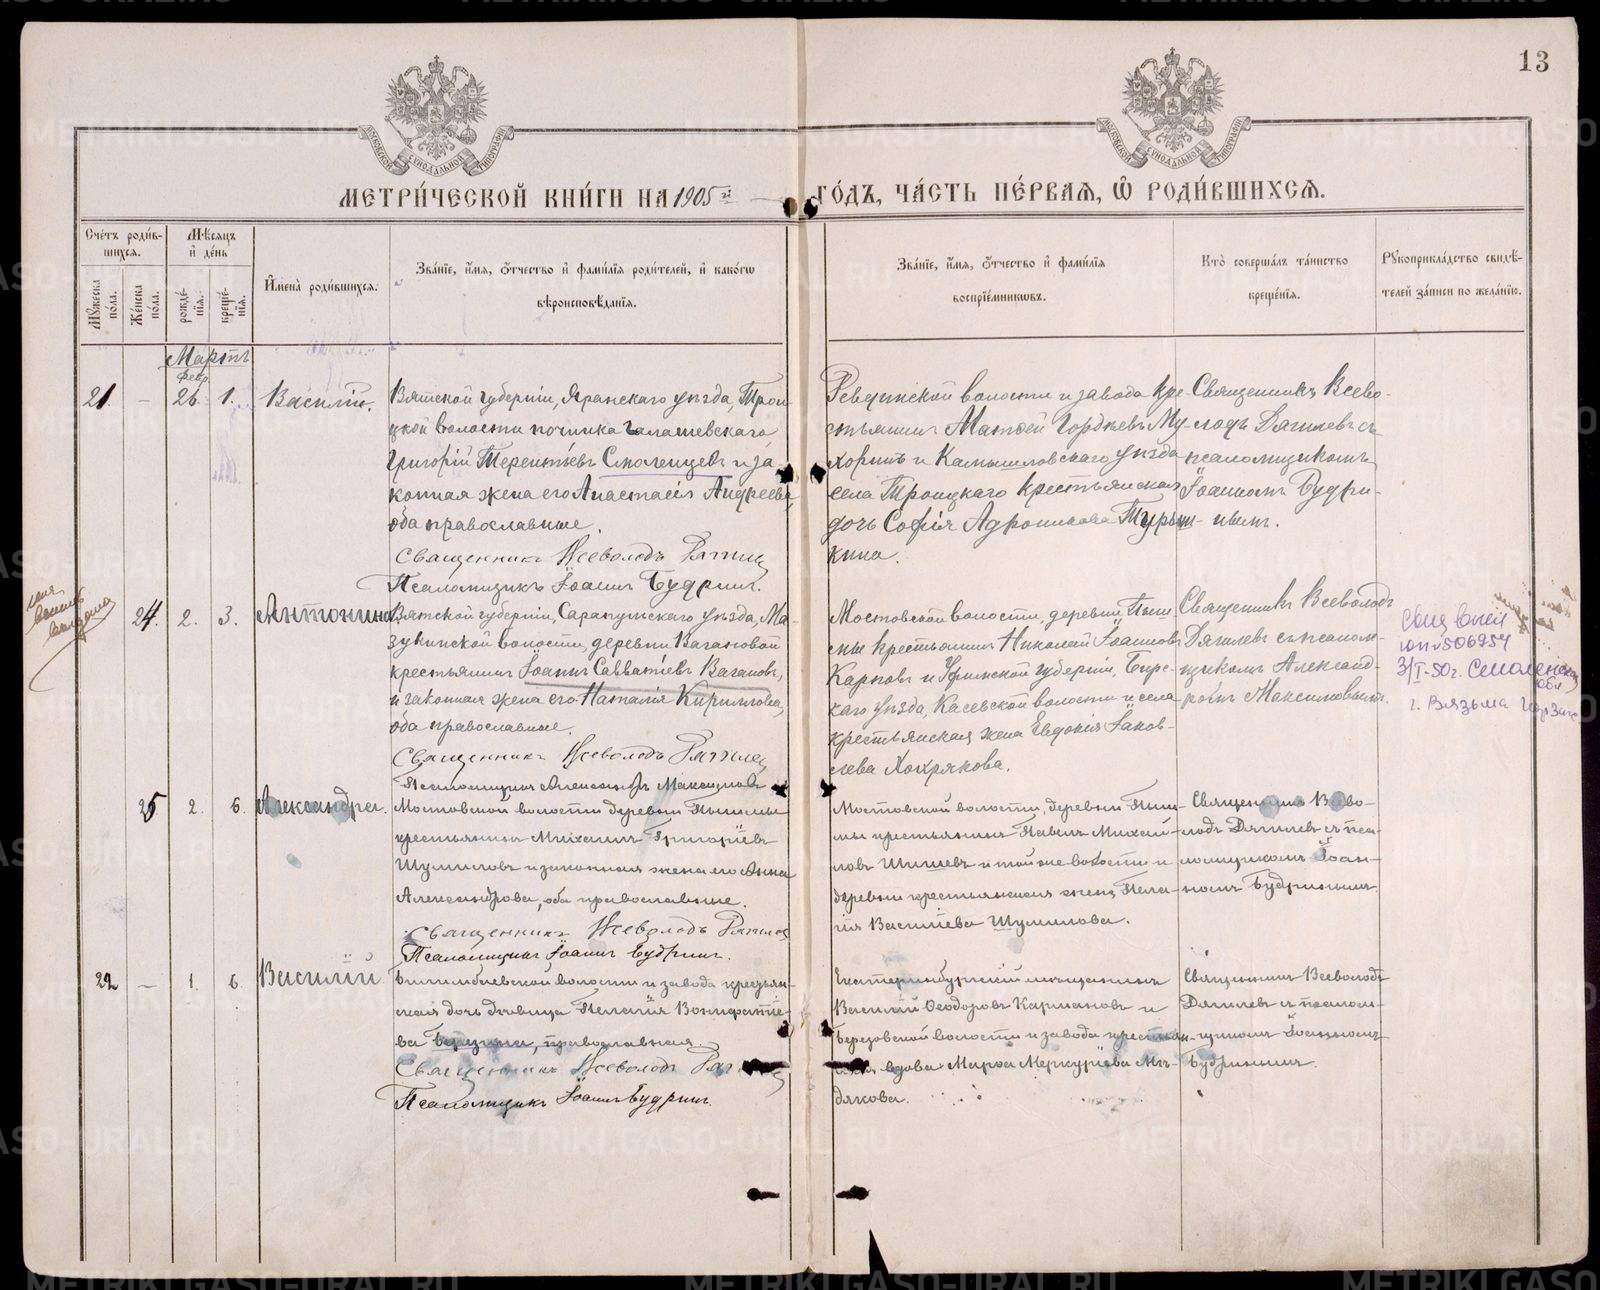 13
МОСКОВСКОЙ СѴНОДАЛЬНОЙ ТИПОГРАФІИ
МОСКОВСКОЙ СѴНОДАЛЬНОЙ ТИПОГРАФІИ
МЕТРИ́ЧЕСКОЙ КНИ́ГИ НА 1905й ГО́ДЪ, ЧА́СТЬ ПЕ́РВАЯ, Ѽ РОДИ́ВШИХСѦ.
Сче́тъ роди́вшихся.
Мѣ́сяцъ и҆ де́нь
Мꙋ́жеска по́ла.
Же́нска по́ла.
рожде́нїя.
креще́нїя.
И҆мена̀ роди́вшихся.
Зва́нїе, и҆́мя, ѻ҆́тчество и҆ фами́лїя роди́телей, и҆ како́гѡ
вѣроисповѣ́данїя.
Зва́нїе, и҆́мя, ѻ҆́тчество и҆ фами́лїя
воспрїе́мникѡвъ.
Кто̀ соверша́лъ та́инство
креще́нїя.
Рꙋкоприкла́дство свидѣ́-
телей за́писи по жела́нїю.
Мартъ
Февр.
21. — 26. 1. Василій.
Вятской губерніи, Яранскаго уѣзда, Трои-
цкой волости починка Галашевскаго
Григорій Терентьевъ Смоленцевъ и за-
конная жена его Анастасія Андреева,
оба православные.
Священникъ Всеволодъ Дягилев
Псаломщикъ Іоаннъ Будринъ.
Ревдинской волости и завода кре-
стьянинъ Матѳей Гордѣевъ Му-
хоринъ и Камышловскаго уѣзда
села Троицкаго крестьянская
дочь Софія Адроникова Турын-
кина.
Священникъ Всево-
лодъ Дягилевъ съ
псаломщикомъ
Іоанномъ Будри-
нымъ.
24. 2. 3. Антонина.
Вятской губерніи, Сарапульскаго уѣзда, Ма-
зунинской волости, деревни Вагановой
крестьянинъ Іоаннъ Савватіевъ Вагановъ,
и законная жена его Наталія Кириллова,
оба православные.
Священникъ Всеволодъ Дягилев
Псаломщикъ Александръ Максимовъ
Мостовской волости, деревни Пыш-
мы крестьянинъ Николай Іоанновъ
Карповъ и Уфимской губерніи, Бирс-
каго уѣзда, Касевской волости и села
крестьянская жена Евдокія Іаков-
лева Хохрякова.
Священникъ Всеволодъ
Дягилевъ съ псалом-
щикомъ Александ-
ромъ Максимовымъ.
506954
3/I-50г. Смоленская
обл
г. Вязьма
25 2. 6. Александра.
Мостовской волости деревни Пышмы
крестьянинъ Михаилъ Григоріевъ
Шумиловъ и законная жена его Анна
Александрова, оба православные.
Священникъ Всеволодъ Дягилев
Псаломщикъ Іоаннъ Будринъ.
Мостовской волости, деревни Пыш-
мы крестьянинъ Павелъ Михай-
ловъ и той же волости и
деревни крестьянская жена Пела-
гія Васильева Шумилова.
Священникъ Всево-
лодъ Дягилевъ съ пса-
ломщикомъ Іоан-
номъ Будринымъ.
22 — 1. 6. Василій.
Билимбаевской волости и завода крестьян-
ская дочь дѣвица Пелагія Вонифатіе-
ва православная.
Священникъ Всеволодъ Дягилев
Псаломщикъ Іоаннъ Будринъ.
Екатеринбургскій мѣщанинъ
Василій Ѳеодоровъ Кармановъ и
Березовской волости и завода крестьян-
ская вдова Марѳа Меркуріева Мѣ-
дякова.
Священникъ Всеволодъ
Дягилевъ съ псалом-
щикомъ Іоанномъ
Будринымъ.